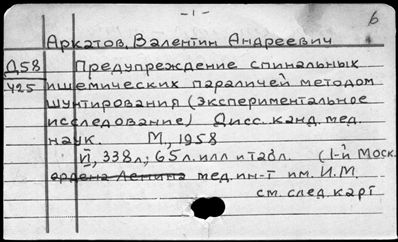 -1-
б
Аркатов, Валентин Андреевич
Д58 Предупреждение спинальных
425 ишемических параличей методом
шунтирования (экспериментальное
исследование) Дисс. канд. мед.
наук. М, 1958
II, 338л; 65л. илл и табл. (1-й Моск.
ордена Ленина мед. ин-т им. И.М.
см. след карт